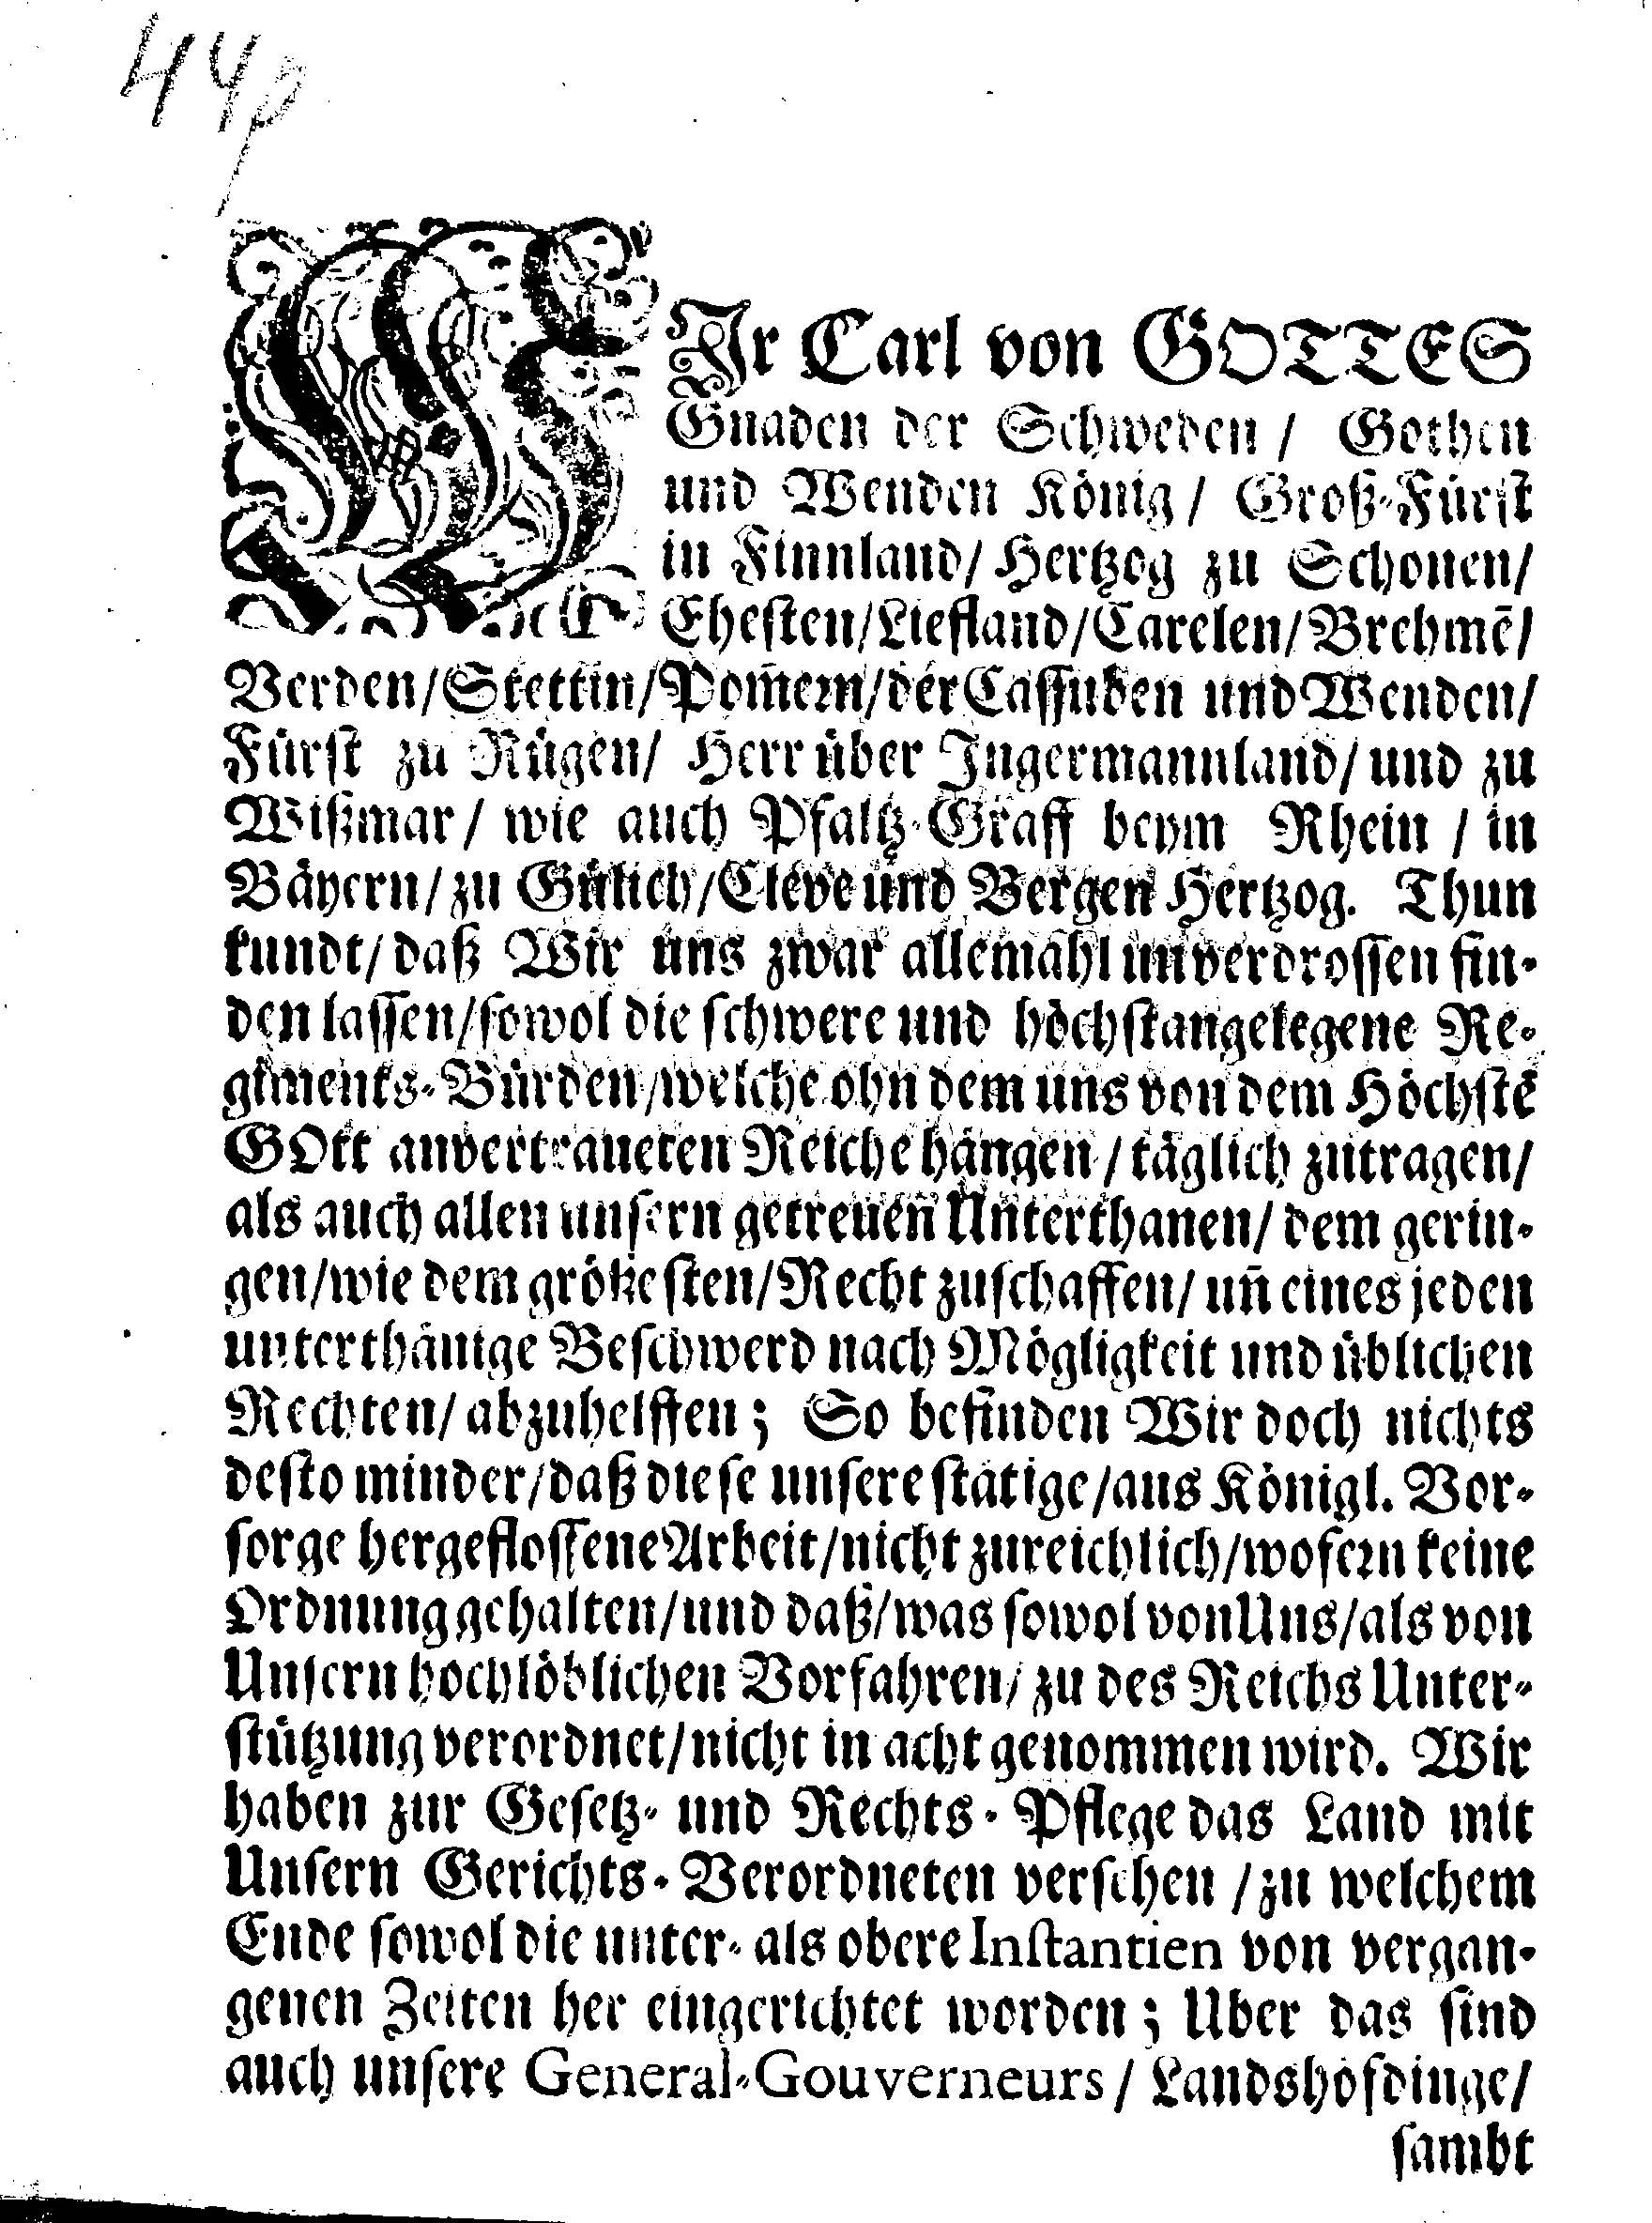 44p
WIr Carl von GOTTES
Gnaden der Schweden / Gothen
und Wenden König / Groß-Fürst
in Finnland / Hertzog zu Schonen /
Ehesten / Liefland / Carelen / Brehmē /
Verden / Stettin / Pom̄ern / der Cassuben und Wenden /
Fürst zu Rügen / Herr über Ingermannland / und zu
Wißmar / wie auch Pfaltz-Graff beym Rhein / in
Bäyern / zu Gülich / Cleve und Bergen Hertzog. Thun
kundt / daß Wir uns zwar allemahl unverdrossen fin-
den lassen / sowol die schwere und höchstangelegene Re-
giments-Bürden / welche ohn dem uns von dem Höchstē
GOtt anvertraueten Reiche hängen / täglich zutragen /
als auch allen unsern getreuen Unterthanen / dem gerin-
gen / wie dem grössesten / Recht zuschaffen / un̄ eines jeden
unterthänige Beschwerd nach Mögligkeit und üblichen
Rechten / abzuhelffen ; So befinden Wir doch nichts
desto minder / daß diese unsere stätige / aus Königl. Vor-
sorge hergeflossene Arbeit / nicht zureichlich / wofern keine
Ordnung gehalten / und daß / was sowol von Uns / als von
Unsern hochlöblichen Vorfahren / zu des Reichs Unter-
stützung verordnet / nicht in acht genommen wird. Wir
haben zur Gesetz- und Rechts-Pflege das Land mit
Unsern Gerichts-Verordneten versehen / zu welchem
Ende sowol die unter- als obere Instantien von vergan-
genen Zeiten her eingerichtet worden ; Uber das sind
auch unsere General-Gouverneurs / Landshöfdinge /
sambt